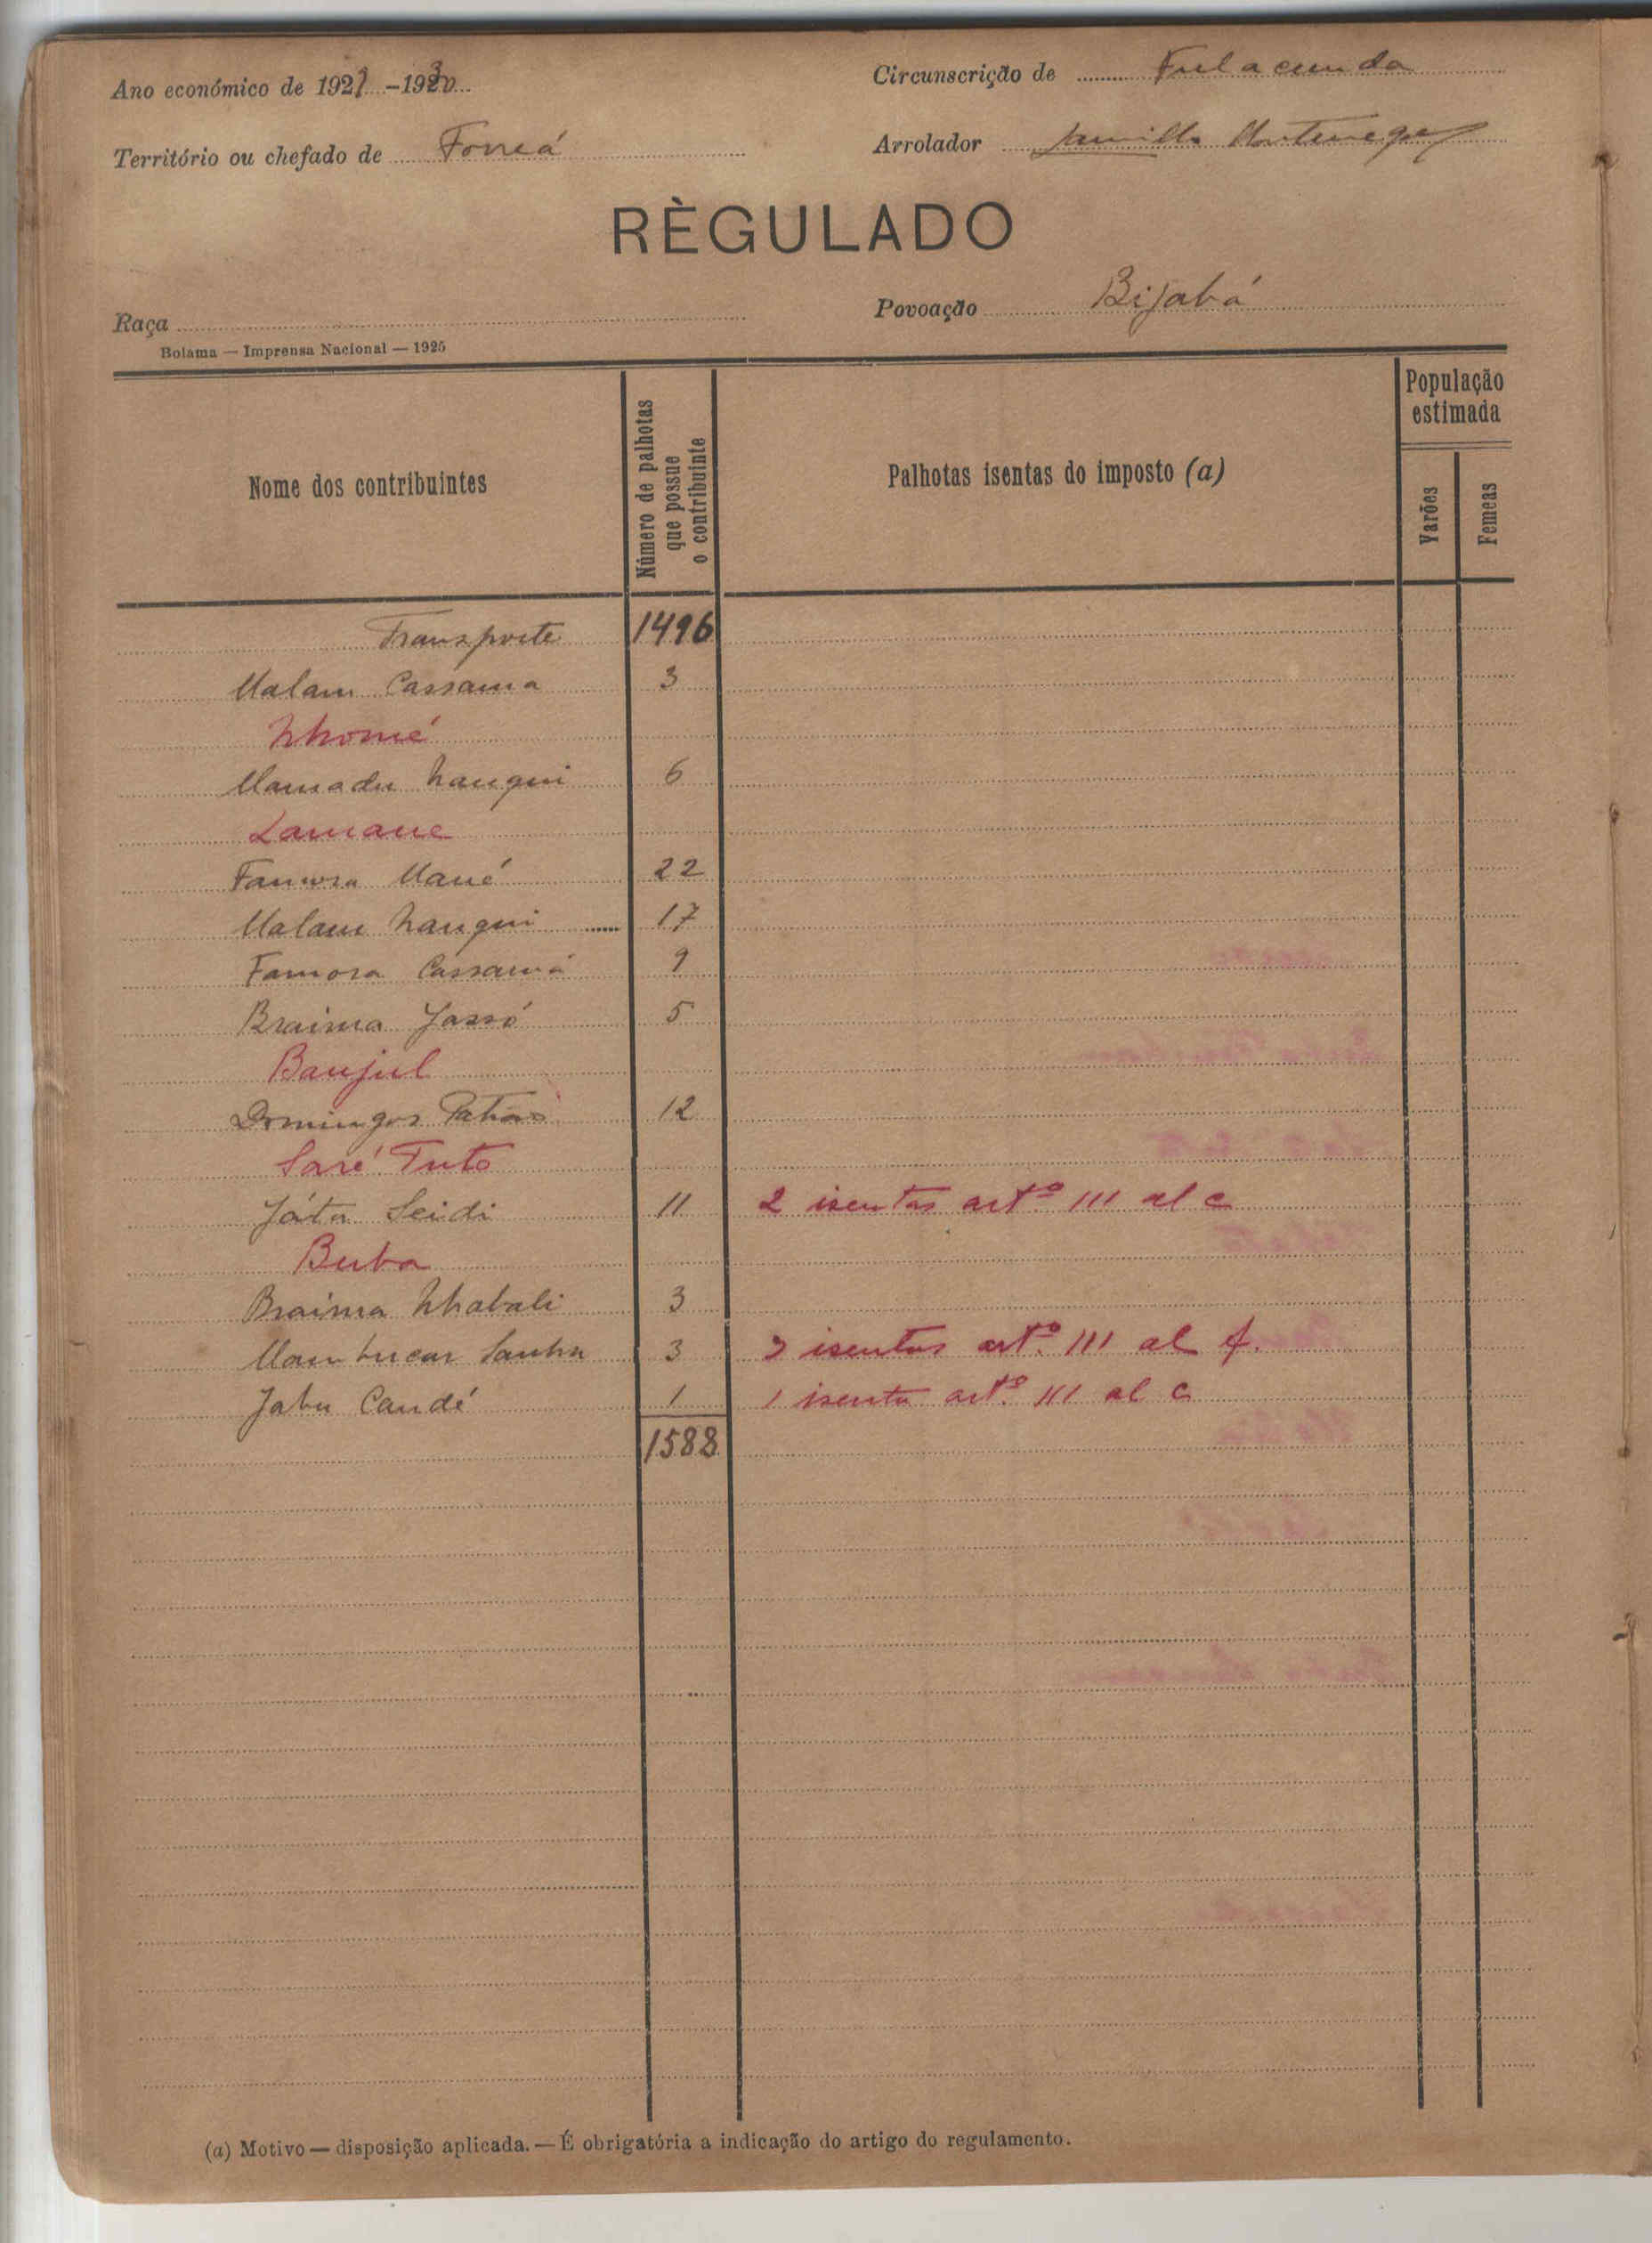 Ano económico de 1929-1930 Circunscrição de Fulacunda
Território ou chefado de Forreá Arrolador Montenegro
RÈGULADO
Raça Povoação Bijabá
Bolama — Imprensa Nacional — 1925
Nome dos contribuintes Número de palhotas que possue o contribuinte Palhotas isentas do imposto (a) População estimada Varões Femeas
Transporte 1496
Malam Cassama 3
Nhomé
Mamadu Nanqui 6
Lamane
Famora Mané 22
Malam Nanqui 17
Famora Cassamá 9
Braima Jassó 5
Banjul
Domingos 12
Saré Tuto
Játa Seidi 11 2 isentas artº 111 al c
Buba
Braima Nhabali 3
Sanha 3 3 isentas artº. 111 al f.
Jabu Candé 1 1 isenta artº. 111 al c
1588
(a) Motivo — disposição aplicada. — É obrigatória a indicação do artigo do regulamento.